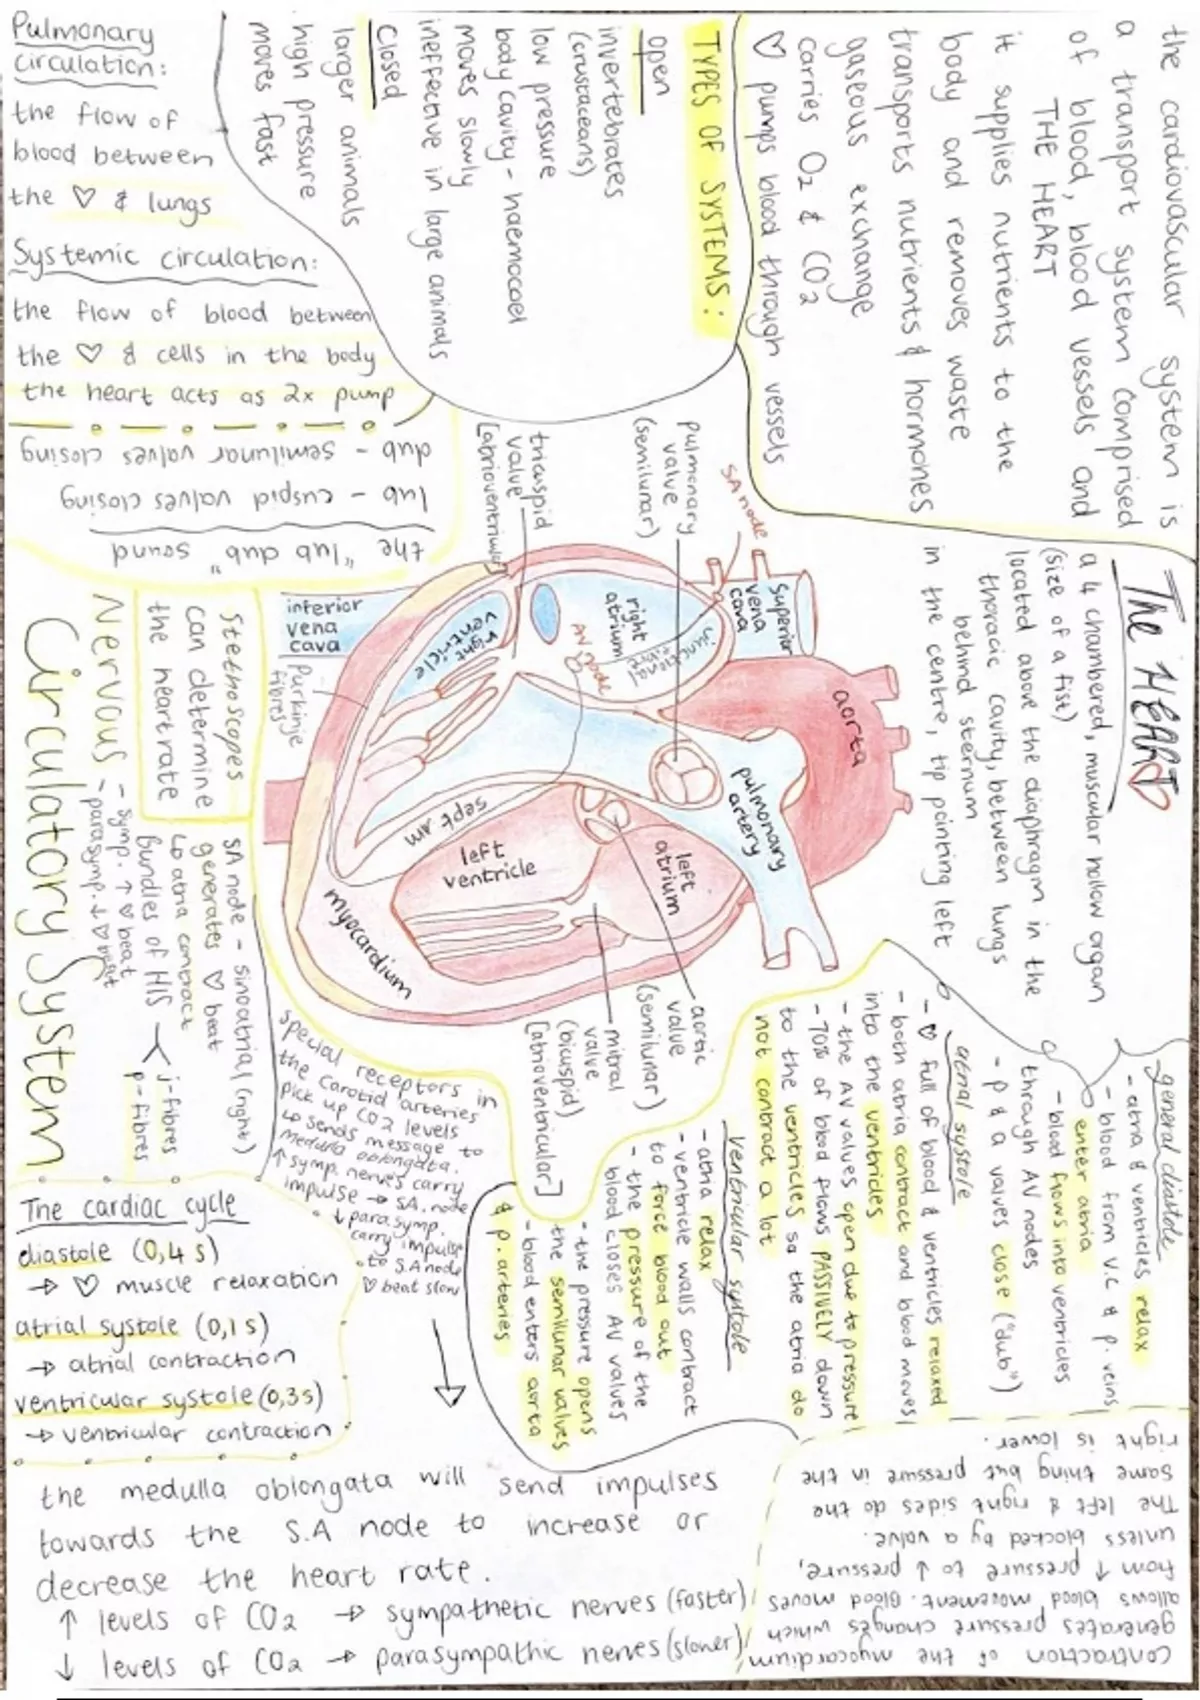 the cardiovascular system is
a transport system comprised
of blood, blood vessels and
THE HEART
it supplies nutrients to the
body and removes waste
transports nutrients & hormones
gaseous exchange
carries O2 & CO2
♡ pumps blood through vessels
TYPES OF SYSTEMS:
open
invertebrates
(crustaceans)
low pressure
body cavity - haemocoel
moves slowly
ineffective in large animals
Closed
larger animals
high pressure
moves fast
Pulmonary
circulation:
the flow of
blood between
the ♡ & lungs
Systemic circulation:
the flow of blood between
the ♡ & cells in the body
the heart acts as 2x pump
the "lub dub" sound
lub - cuspid valves closing
dub - semilunar valves closing
The HEART
a 4 chambered, muscular hollow organ
(size of a fist)
located above the diaphragm in the
thoracic cavity, between lungs
behind sternum
in the centre, tip pointing left
SA node
pulmonary
valve
(semilunar)
tricuspid
valve
[atrioventricular]
superior
vena
cava
junctional
fibre
right
atrium
AV node
right
ventricle
inferior
vena
cava
Purkinje
fibres
aorta
pulmonary
artery
left
atrium
septum
left
ventricle
myocardium
aortic
valve
(semilunar)
mitral
valve
(bicuspid)
[atrioventricular]
general diastole
- atria & ventricles relax
- blood from v.c & p. veins
enter atria
- blood flows into ventricles
through AV nodes
- p & a valves close ("dub")
atrial systole
- ♡ full of blood & ventricles relaxed
- both atria contract and blood moves
into the ventricles
- the AV valves open due to pressure
- 70% of blood flows PASSIVELY down
to the ventricles so the atria do
not contract a lot
ventricular systole
- atria relax
- ventricle walls contract
to force blood out
- the pressure of the
blood closes AV valves
- the pressure opens
the semilunar valves
- blood enters aorta
& p. arteries
Contraction of the myocardium
generates pressure changes which
allows blood movement. Blood moves
from ↑ pressure to ↓ pressure,
unless blocked by a valve.
The left & right sides do the
same thing but pressure in the
right is lower.
Stethoscopes
can determine
the heartrate
SA node - sinoatrial (right)
generates ♡ beat
↳ atria contract
bundles of HIS < j-fibres
p-fibres
Nervous - symp. ↑ ♡ beat
- parasymp. ↓ ♡ beat
Circulatory System
special receptors in
the carotid arteries
pick up CO2 levels
↳ sends message to
medulla oblongata.
↑ symp. nerves carry
impulse → SA. node
↓ parasymp.
carry impulse
to S.A node
♡ beat slow
The cardiac cycle
diastole (0,4 s)
→ ♡ muscle relaxation
atrial systole (0,1 s)
→ atrial contraction
ventricular systole (0,3s)
→ ventricular contraction
the medulla oblongata will send impulses
towards the S.A node to increase or
decrease the heart rate.
↑ levels of CO2 → sympathetic nerves (faster)
↓ levels of CO2 → parasympathic nerves (slower)